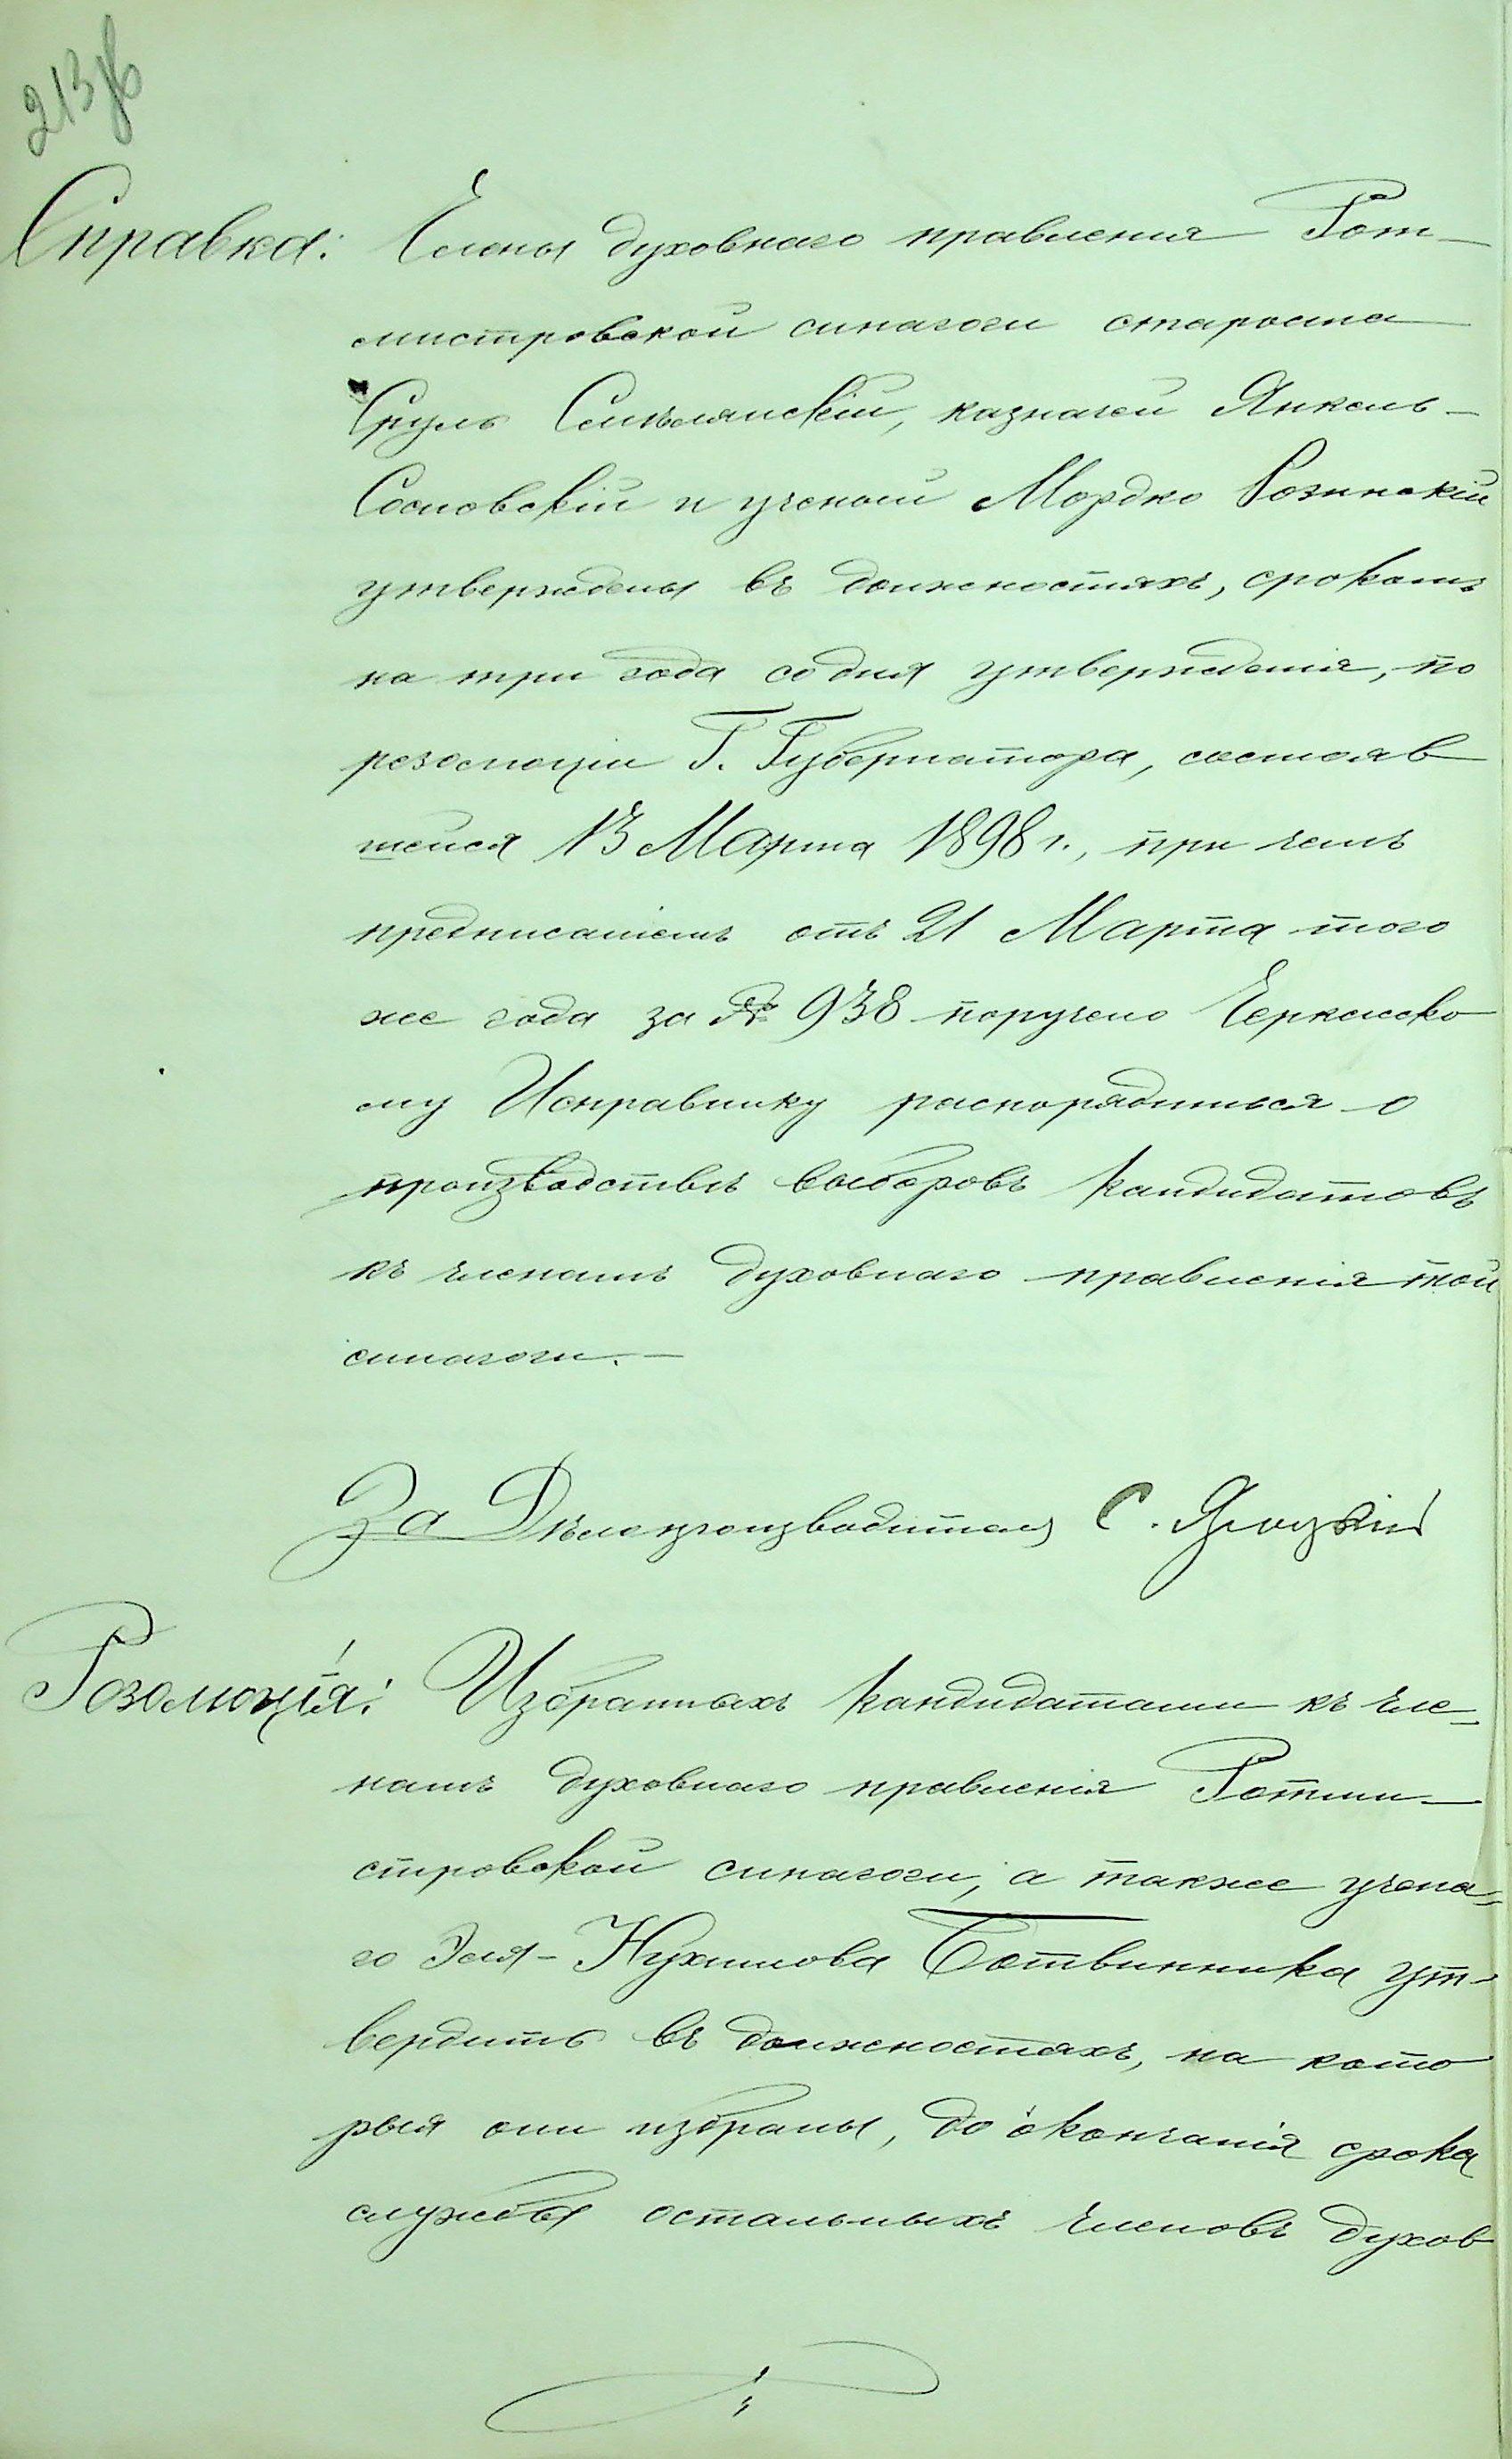 213 об
Справка: Члены духовнаго правления Рот-
мистровской синагоги староста
Сруль Смѣлянскій, казначей Янкель-
Сосновскій и ученый Мордко Розинскій
утверждены въ должностяхъ, срокомъ
на три года со дня утвержденія, по
резолюціи Г. Губернатора, состояв
шейся 13 Марта 1898 г., при чемъ
предписаніемъ отъ 21 Марта того
же года за № 938 поручено Черкасско
му Исправнику распорядиться о
производствѣ выборовъ кандидатовъ
къ членамъ духовнаго правленія той
синагоги.-
За Дѣлопроизводителя С.
Резолюція: Избранныхъ кандидатами къ чле-
намъ духовнаго правленія Ротми-
стровской синагоги, а также учена-
го Эля-Нухимова Ботвинника ут-
вердить въ должностяхъ, на кото
рыя они избраны, до окончанія срока
службы остальныхъ членовъ духов